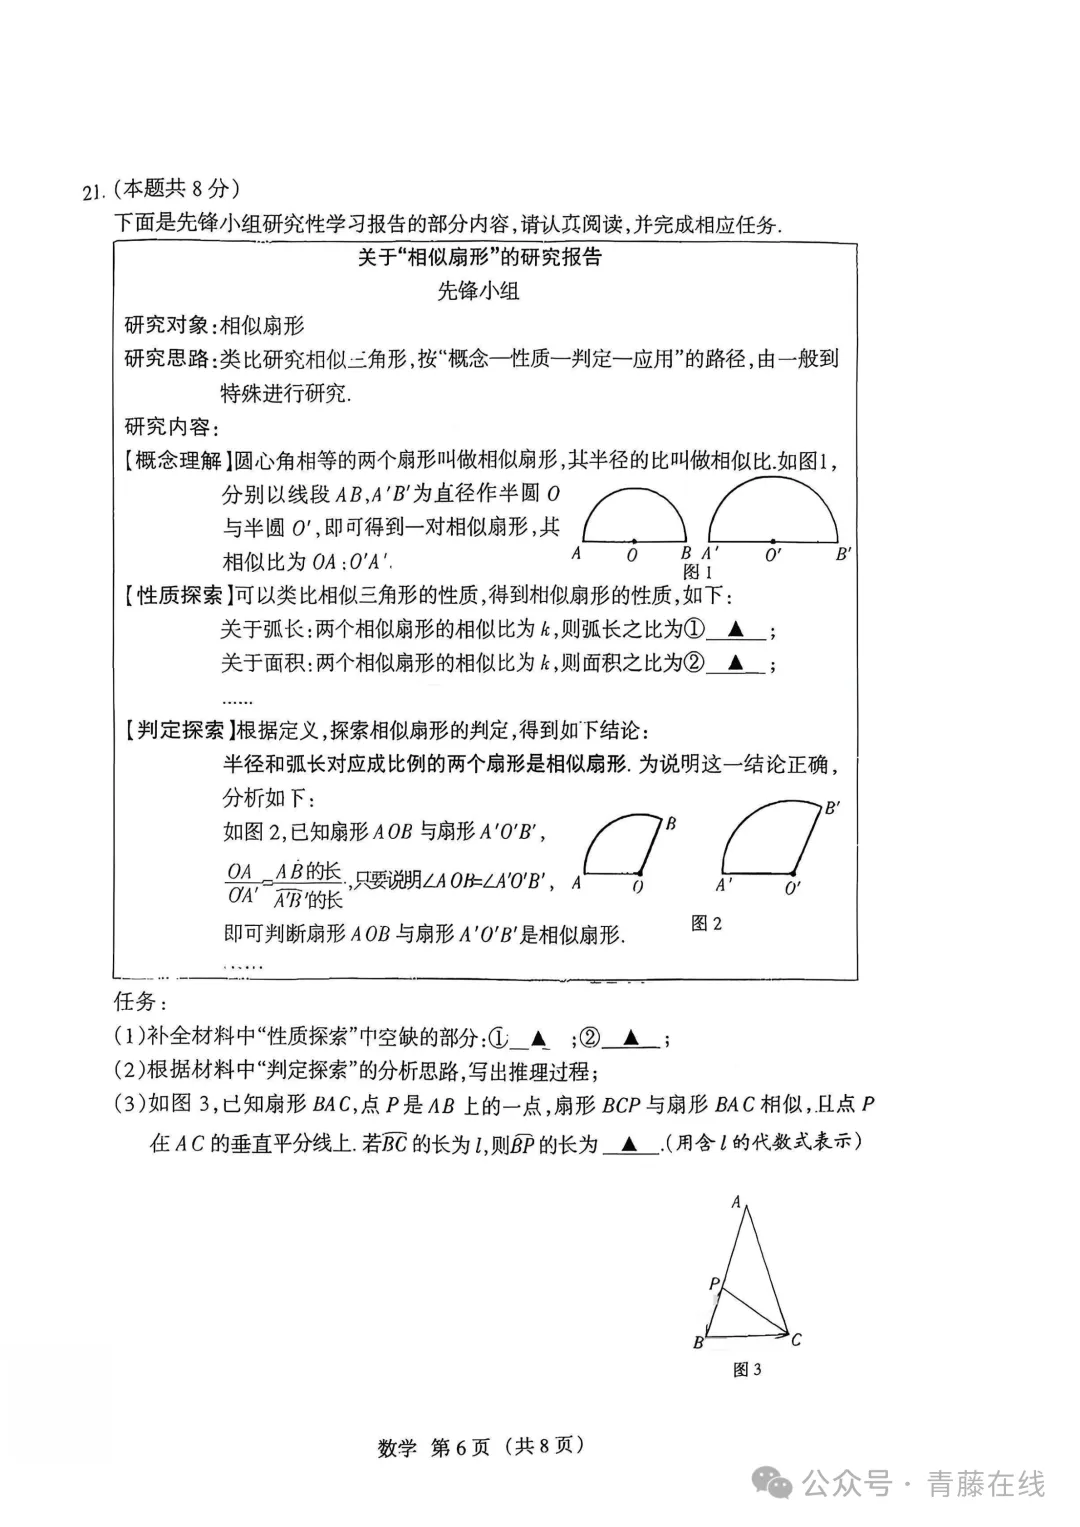 21.(本题共8分)
下面是先锋小组研究性学习报告的部分内容,请认真阅读,并完成相应任务.
关于“相似扇形”的研究报告
先锋小组
研究对象:相似扇形
研究思路:类比研究相似三角形,按“概念—性质—判定—应用”的路径,由一般到
特殊进行研究.
研究内容:
【概念理解】圆心角相等的两个扇形叫做相似扇形,其半径的比叫做相似比.如图1,
分别以线段AB,A′B′为直径作半圆O
与半圆O′,即可得到一对相似扇形,其
相似比为OA:O′A′.
A O B A′ O′ B′
图1
【性质探索】可以类比相似三角形的性质,得到相似扇形的性质,如下:
关于弧长:两个相似扇形的相似比为k,则弧长之比为①▲;
关于面积:两个相似扇形的相似比为k,则面积之比为②▲;
……
【判定探索】根据定义,探索相似扇形的判定,得到如下结论:
半径和弧长对应成比例的两个扇形是相似扇形.为说明这一结论正确,
分析如下:
如图2,已知扇形AOB与扇形A′O′B′,
OA/O′A′=AB的长/A′B′的长,只要说明∠AOB=∠A′O′B′,
即可判断扇形AOB与扇形A′O′B′是相似扇形.
……
B B′
A O A′ O′
图2
任务:
(1)补全材料中“性质探索”中空缺的部分:①▲;②▲;
(2)根据材料中“判定探索”的分析思路,写出推理过程;
(3)如图3,已知扇形BAC,点P是AB上的一点,扇形BCP与扇形BAC相似,且点P
在AC的垂直平分线上.若BC的长为l,则BP的长为▲.(用含l的代数式表示)
A
P
B C
图3
数学 第6页(共8页)
公众号·青藤在线